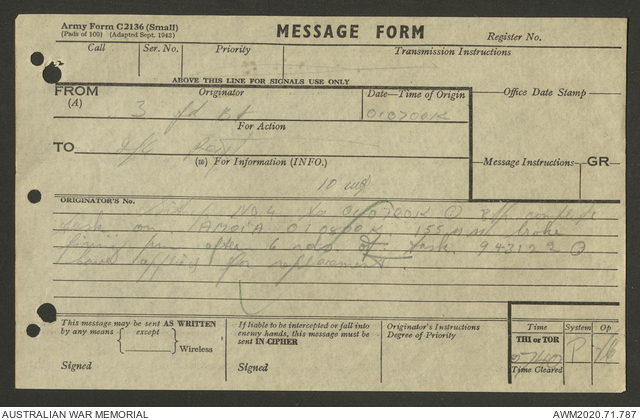 Army Form C2136 (Small)
(Pads of 100) (Adapted Sept. 1943)
MESSAGE FORM
Register No.
Call Ser. No. Priority Transmission Instructions
ABOVE THIS LINE FOR SIGNALS USE ONLY
FROM
(A)
Originator
Date—Time of Origin
Office Date Stamp
3 fd 010700K
For Action
TO
(W) For Information (INFO.)
Message Instructions GR
ORIGINATOR'S No.
No 4 010700K
task on 010800K 155 MM broke
firing pin after 6 task 943122
have applied for replacement
This message may be sent AS WRITTEN
by any means except
Wireless
Signed
If liable to be intercepted or fall into
enemy hands, this message must be
sent IN CIPHER
Signed
Originator's Instructions
Degree of Priority
Time System Op
THI or TOR
0740 P
Time Cleared
AUSTRALIAN WAR MEMORIAL
AWM2020.71.787